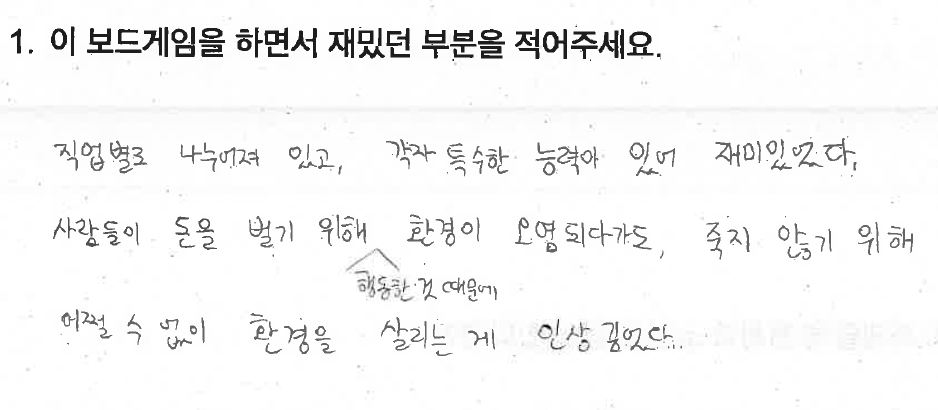 1. 이 보드게임을 하면서 재밌던 부분을 적어주세요.
직업별로 나누어져 있고, 각자 특수한 능력이 있어 재미있었다.
사람들이 돈을 벌기 위해 환경이 오염되다가도, 죽지 않기 위해
행동한 것 때문에
어쩔 수 없이 환경을 살리는 게 인상 깊었다.